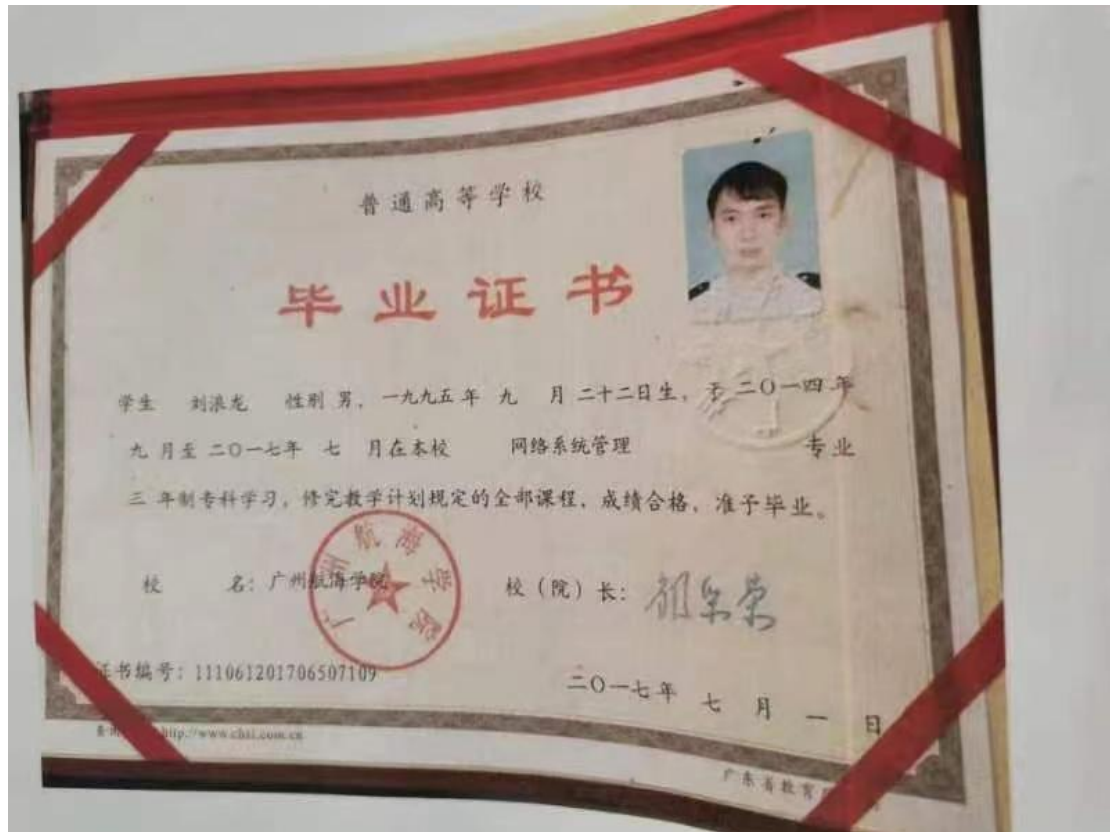 普通高等学校
毕业证书
学生 刘浪龙 性别 男，一九九五年 九 月 二十二日生，于 二〇一四年
九 月至 二〇一七年 七 月在本校 网络系统管理 专业
三 年制专科学习，修完教学计划规定的全部课程，成绩合格，准予毕业。
校 名：广州航海学院 校（院）长：
广州航海学院
证书编号：111061201706507109 二〇一七年 七 月 一 日
http://www.chsi.com.cn
广东省教育